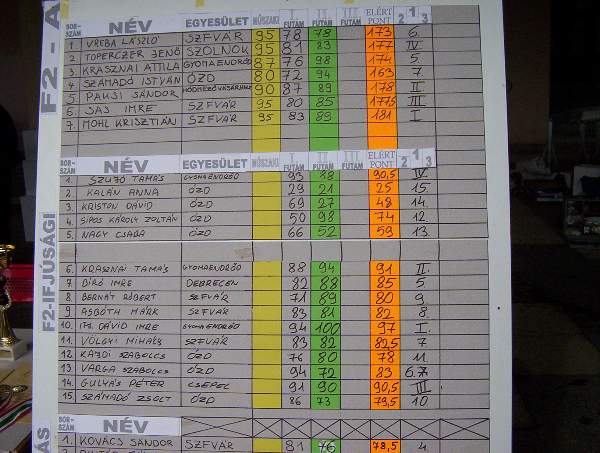 F2 - A
SOR-SZÁM NÉV EGYESÜLET MŰSZAKI I. FUTAM II. FUTAM III. FUTAM ELÉRT PONT 2 1 3
1 VREBA LÁSZLÓ SZFVÁR 95 78 78 173 6.
2 TOPERCZER JENŐ SZOLNOK 95 81 83 177 IV.
3 KRASZNAI ATTILA GYOMAENDRŐD 87 76 98 174 5
4 SZÁMADÓ ISTVÁN ÓZD 80 72 94 163 7
5 PAKSI SÁNDOR HÓDMEZŐVÁSÁRHELY 90 87 89 178 II
6 SAS IMRE SZFVÁR 95 80 85 177,5 III
7 MOHL KRISZTIÁN SZFVÁR 95 83 89 181 I
F2-IFJÚSÁGI
SOR-SZÁM NÉV EGYESÜLET MŰSZAKI I. FUTAM II. FUTAM III. FUTAM ELÉRT PONT 2 1 3
1. SZUJÓ TAMÁS GYOMAENDRŐD 93 88 90,5 IV.
2 KALÁN ANNA ÓZD 29 21 25 15
3. KRISTON DÁVID ÓZD 69 27 48 14
4. SIPOS KÁROLY ZOLTÁN ÓZD 50 98 74 12
5. NAGY CSABA ÓZD 66 52 59 13
6. KRASZNAI TAMÁS GYOMAENDRŐD 88 94 91 II.
7 BÍRÓ IMRE DEBRECEN 82 88 85 5
8 BERNÁT RÓBERT SZFVÁR 71 89 80 9
9 ASBÓTH MÁRK SZFVÁR 83 81 82 8
10. IFJ. DÁVID IMRE GYOMAENDRŐD 94 100 97 I.
11. VÖLGYI MIHÁLY SZFVÁR 83 82 82,5 7
12 KAZDI SZABOLCS ÓZD 76 80 78 11
13 VARGA SZABOLCS ÓZD 94 72 83 6.
14. GULYÁS PÉTER CSEPEL 91 90 90,5 III
15. SZÁMADÓ ZSOLT ÓZD 86 73 79,5 10
SOR-SZÁM NÉV
1. KOVÁCS SÁNDOR SZFVÁR 81 76 78,5 4